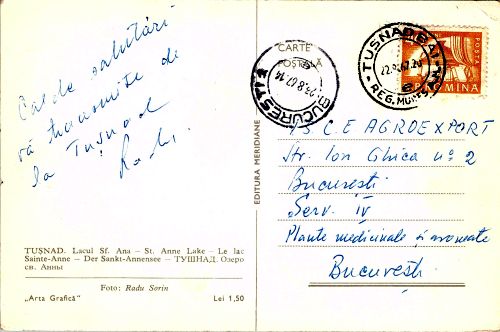 Calde salutări
vă transmite de
la Tușnad
Radu.
TUȘNAD. Lacul Sf. Ana — St. Anne Lake — Le lac
Sainte-Anne — Der Sankt-Annensee — ТУШНАД: Озеро
св. Анны
Foto: Radu Sorin
„Arta Grafică” Lei 1,50
EDITURA MERIDIANE
CARTE
POȘTALĂ
BUCUREȘTI
23.8.67.14
TUȘNAD BAI
REG. MUREȘ
POSTA
ROMINA
C E AGROEXPORT
Str. Ion Ghica nº 2
București
Serv. IV
Plante medicinale și aromate
București